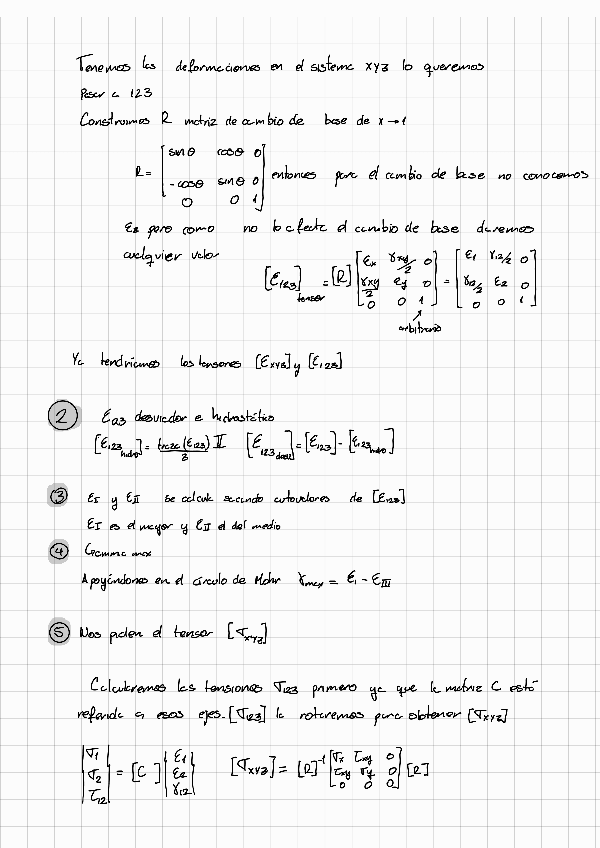 Tenemos las deformaciones en el sistema XYZ lo queremos
Pasar a 123
Construimos R matriz de cambio de base de x → 1
R = [ sin θ cos θ 0 ; -cos θ sin θ 0 ; 0 0 1 ] entonces para el cambio de base no conocemos
εz pero como no lo afecta el cambio de base daremos
cualquier valor
[ε123] tensor = [R] [ εx γxy/2 0 ; γxy/2 εy 0 ; 0 0 1 ] = [ ε1 γ12/2 0 ; γ12/2 ε2 0 ; 0 0 1 ]
arbitrario
Ya tendriamos los tensores [εxyz] y [ε123]
2 desviador e hidrostático
[ε123 hidro] = traza(ε123)/3 II [ε123 desv] = [ε123] - [ε123 hidro]
3 εI y εII se calcula sacando autovalores de [ε123]
εI es el mayor y εII el del medio
4 Gamma max
Apoyándonos en el círculo de Mohr γmax = εI - εIII
5 Nos piden el tensor [σxyz]
Calcularemos las tensiones σ123 primero ya que la matriz C está
referida a esos ejes. [σ123] la rotaremos para obtener [σxyz]
| σ1 ; σ2 ; τ12 | = [C] | ε1 ; ε2 ; γ12 | [σxyz] = [R]⁻¹ [ σx τxy 0 ; τxy σy 0 ; 0 0 0 ] [R]